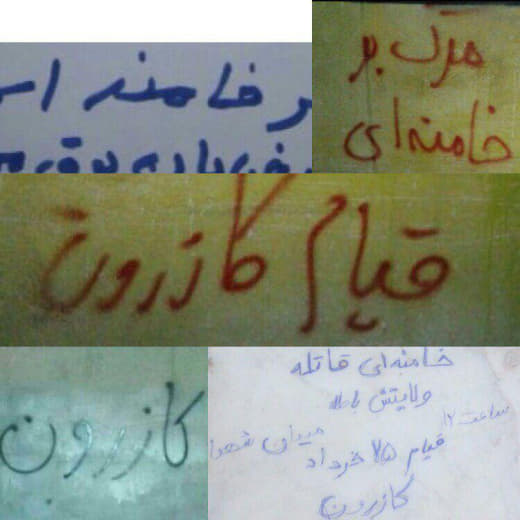 مرگ بر
خامنه‌ای
قیام کازرون
کازرون
خامنه‌ای قاتله
ولایتش باطله
ساعت ۱۲
میدان شهدا
قیام ۲۵ خرداد
کازرون